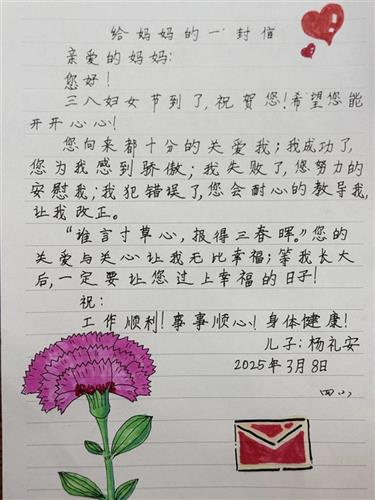 给妈妈的一封信
亲爱的妈妈:
您好!
三八妇女节到了,祝贺您!希望您能
开开心心!
您向来都十分的关爱我;我成功了,
您为我感到骄傲;我失败了,您努力的
安慰我;我犯错误了,您会耐心的教导我,
让我改正。
“谁言寸草心,报得三春晖。”您的
关爱与关心让我无比幸福;等我长大
后,一定要让您过上幸福的日子!
祝:
工作顺利!事事顺心!身体健康!
儿子:杨礼安
2025年3月8日